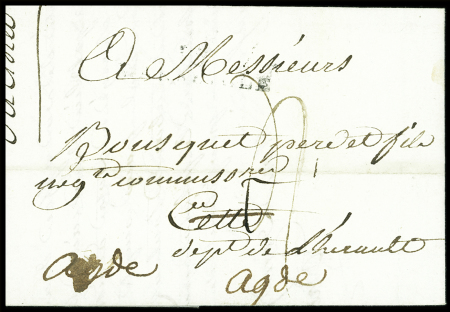 A Messiéurs
Bousquet pere et fils
negts commisres
Cette
dept de L'hérault
agde agde